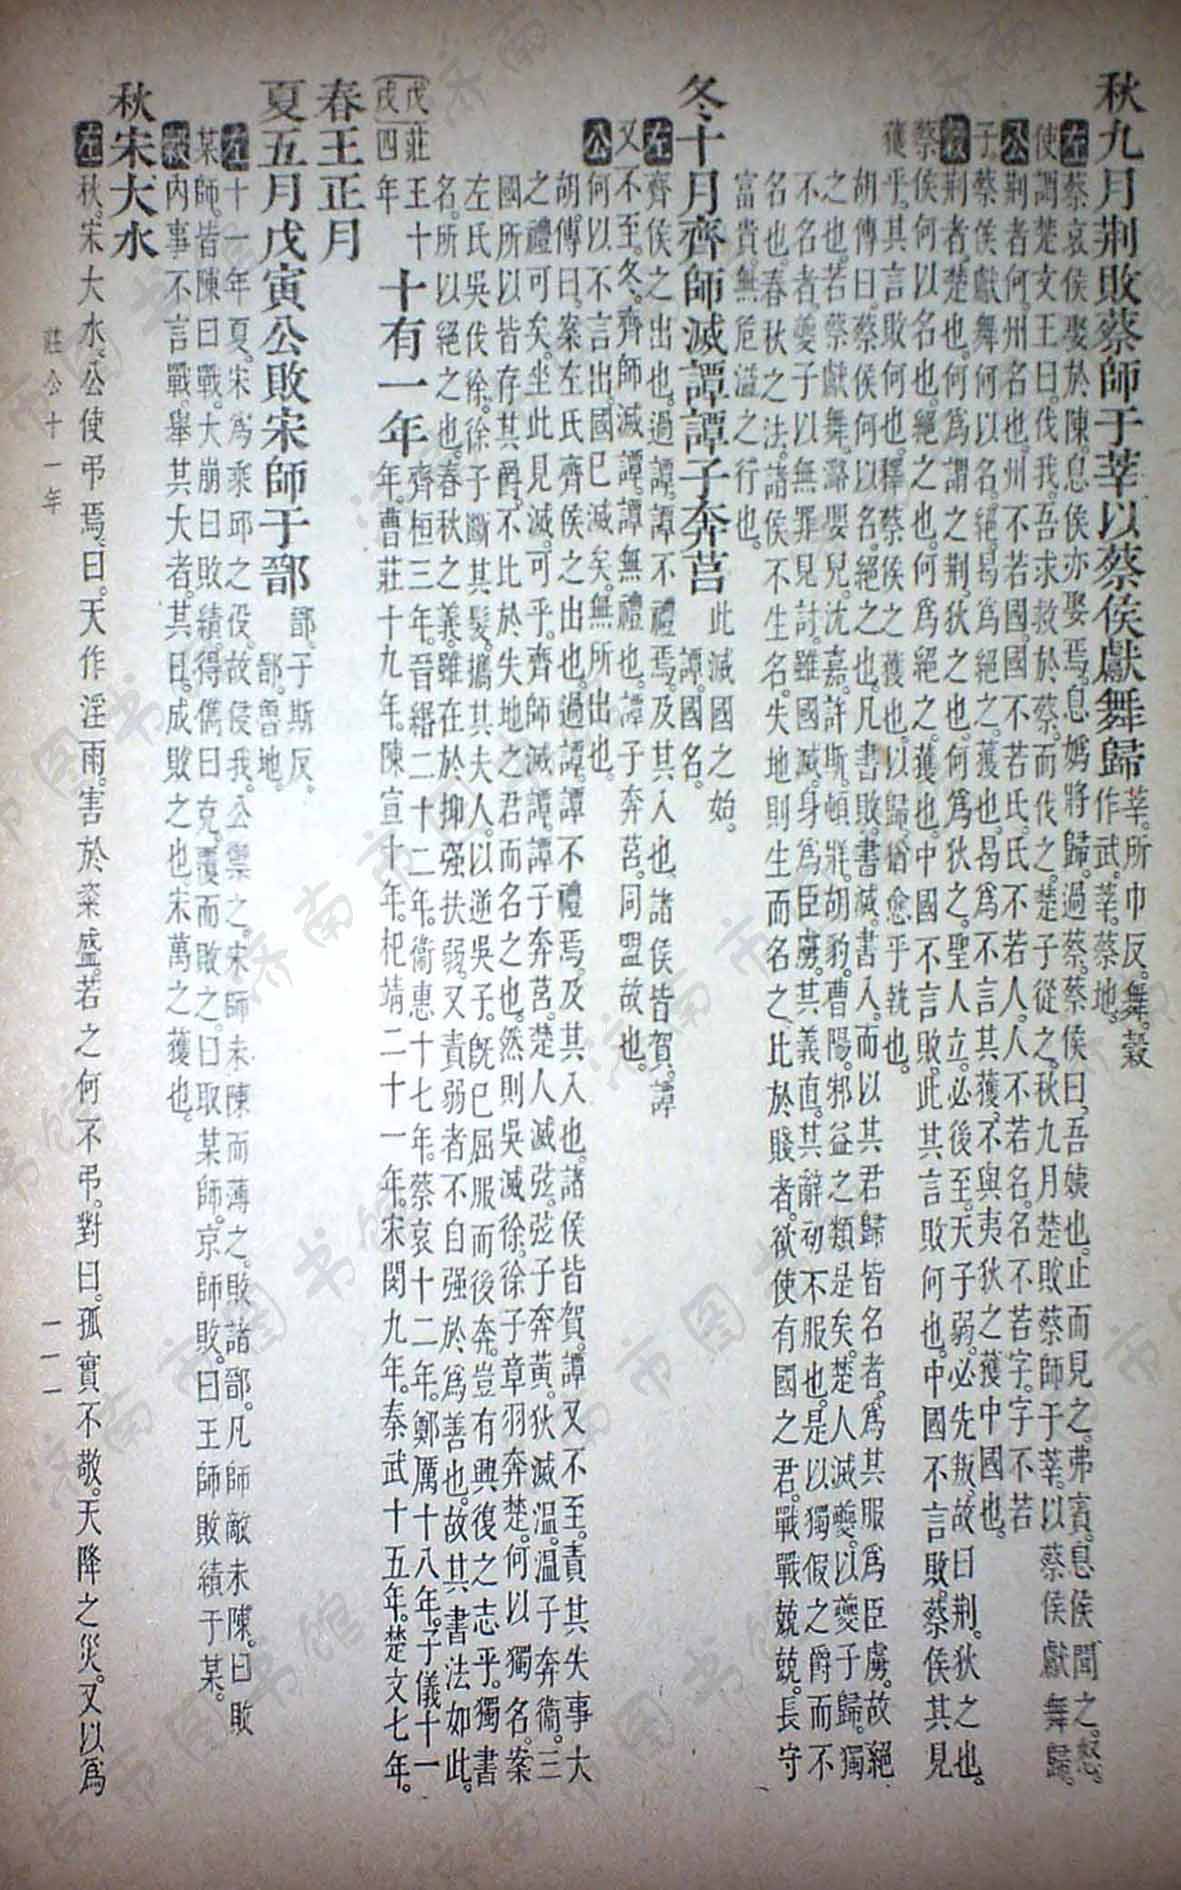 秋九月荆敗蔡師于莘以蔡侯獻舞歸 莘。所巾反。舞。穀
作武。莘。蔡地。
左蔡哀侯娶於陳。息侯亦娶焉。息嬀將歸。過蔡。蔡侯曰。吾姨也。止而見之。弗賓。息侯聞之。怒。
使謂楚文王曰。伐我。吾求救於蔡。而伐之。楚子從之。秋九月楚敗蔡師于莘。以蔡侯獻舞歸。
公荆者何。州名也。州不若國。國不若氏。氏不若人。人不若名。名不若字。字不若
子。蔡侯獻舞何以名。絕。曷爲絕之。獲也。曷爲不言其獲。不與夷狄之獲中國也。
穀荆者。楚也。何爲謂之荆。狄之也。何爲狄之。聖人立。必後至。天子弱。必先叛。故曰荆。狄之也。
蔡侯何以名也。絕之也。何爲絕之。獲也。中國不言敗。此其言敗何也。中國不言敗。蔡侯其見
獲乎。其言敗何也。釋蔡侯之獲也。以歸。猶愈乎執也。
胡傳曰。蔡侯何以名。絕之也。凡書敗。書滅。書入。而以其君歸皆名者。爲其服爲臣虜。故絕
之也。若蔡獻舞。潞嬰兒。沈嘉。許斯。頓牂。胡豹。曹陽。邾益之類是矣。楚人滅夔。以夔子歸。獨
不名者。夔子以無罪見討。雖國滅。身爲臣虜。其義直。其辭初不服也。是以獨假之爵而不
名也。春秋之法。諸侯不生名。失地則生而名之。比於賤者。欲使有國之君。戰戰兢兢。長守
富貴。無危溢之行也。
冬十月齊師滅譚譚子奔莒 此滅國之始。
譚。國名。
左齊侯之出也。過譚。譚不禮焉。及其入也。諸侯皆賀。譚
又不至。冬。齊師滅譚。譚無禮也。譚子奔莒。同盟故也。
公何以不言出。國已滅矣。無所出也。
胡傳曰。案左氏齊侯之出也。過譚。譚不禮焉。及其入也。諸侯皆賀。譚又不至。責其失事大
之禮可矣。坐此見滅。可乎。齊師滅譚。譚子奔莒。楚人滅弦。弦子奔黃。狄滅溫。溫子奔衞。三
國所以皆存其爵。不比於失地之君而名之也。然則吳滅徐。徐子章羽奔楚。何以獨名。案
左氏吳伐徐。徐子斷其髮。攜其夫人。以逆吳子。旣已屈服而後奔。豈有興復之志乎。獨書
名。所以絕之也。春秋之義。雖在於抑强扶弱。又責弱者不自强於爲善也。故其書法如此。
戊戌 莊王十四年 十有一年 齊桓三年。晉緡二十二年。衞惠十七年。蔡哀十二年。鄭厲十八年。子儀十一
年。曹莊十九年。陳宣十年。杞靖二十一年。宋閔九年。秦武十五年。楚文七年。
春王正月
夏五月戊寅公敗宋師于鄑 鄑。于斯反。
鄑。魯地。
左十一年夏。宋爲乘邱之役。故侵我。公禦之。宋師未陳而薄之。敗諸鄑。凡師敵未陳。曰敗
某師。皆陳曰戰。大崩曰敗績。得儁曰克。覆而敗之。曰取某師。京師敗。曰王師敗績于某。
穀內事不言戰。舉其大者。其日。成敗之也。宋萬之獲也。
秋宋大水
左秋。宋大水。公使弔焉。曰。天作淫雨。害於粢盛。若之何不弔。對曰。孤實不敬。天降之災。又以爲
莊公十一年
一一一